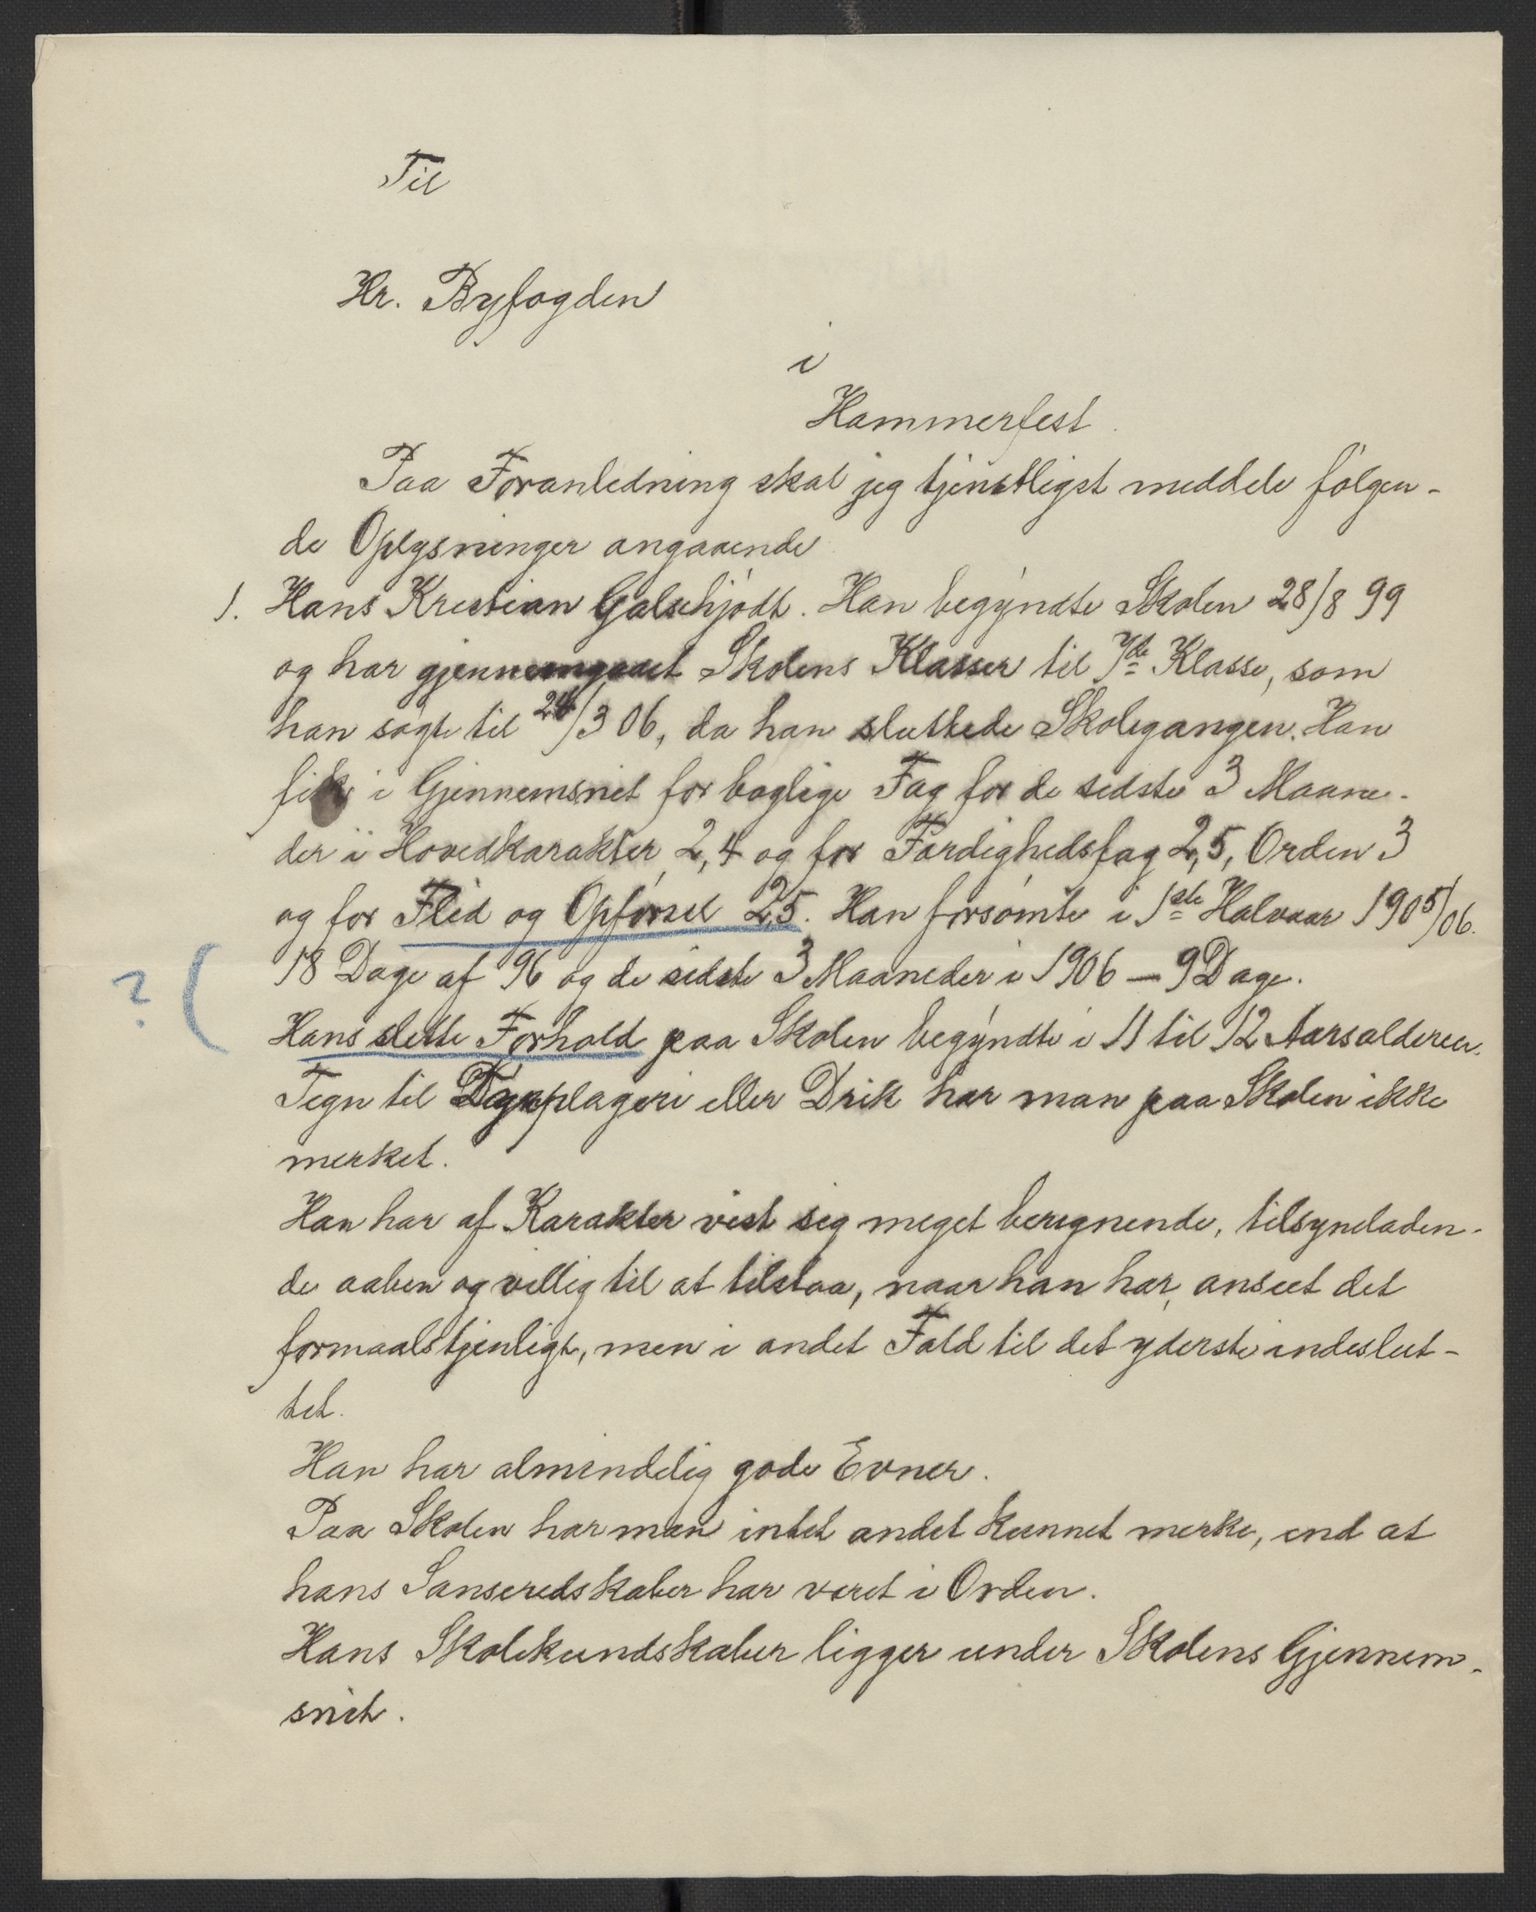 Til
Hr. Byfogden
i
Hammerfest.
Paa Foranledning skal jeg tjenstligst meddele følgen-
de Oplysninger angaaende
1. Hans Kristian Galschjødt. Han begyndte Skolen 28/8 99
og har gjennemgaaet Skolens Klasser til 7de Klasse, som
han søgte til 24/3 06, da han sluttede Skolegangen. Han
fik i Gjennemsnit for boglige Fag for de sidste 3 Maane-
der i Hovedkarakter 2,4 og for Færdighedsfag 2,5, Orden 3
og for Flid og Opførsel 2,5. Han forsømte i 1ste Halvaar 1905/06.
? ( 18 Dage af 96 og de sidste 3 Maaneder i 1906 — 9 Dage.
Hans slette Forhold paa Skolen begyndte i 11 til 12 Aarsalderen.
Tegn til Dyrplageri eller Drik har man paa Skolen ikke
merket.
Han har af Karakter vist sig meget beregnende, tilsyneladen-
de aaben og villig til at tilstaa, naar han har anseet det
formaalstjenligt, men i andet Fald til det yderste indeslut-
tet.
Han har almindelig gode Evner.
Paa Skolen har man intet andet kunnet merke, end at
hans Sanseredskaber har været i Orden.
Hans Skolekundskaber ligger under Skolens Gjennem-
snit.